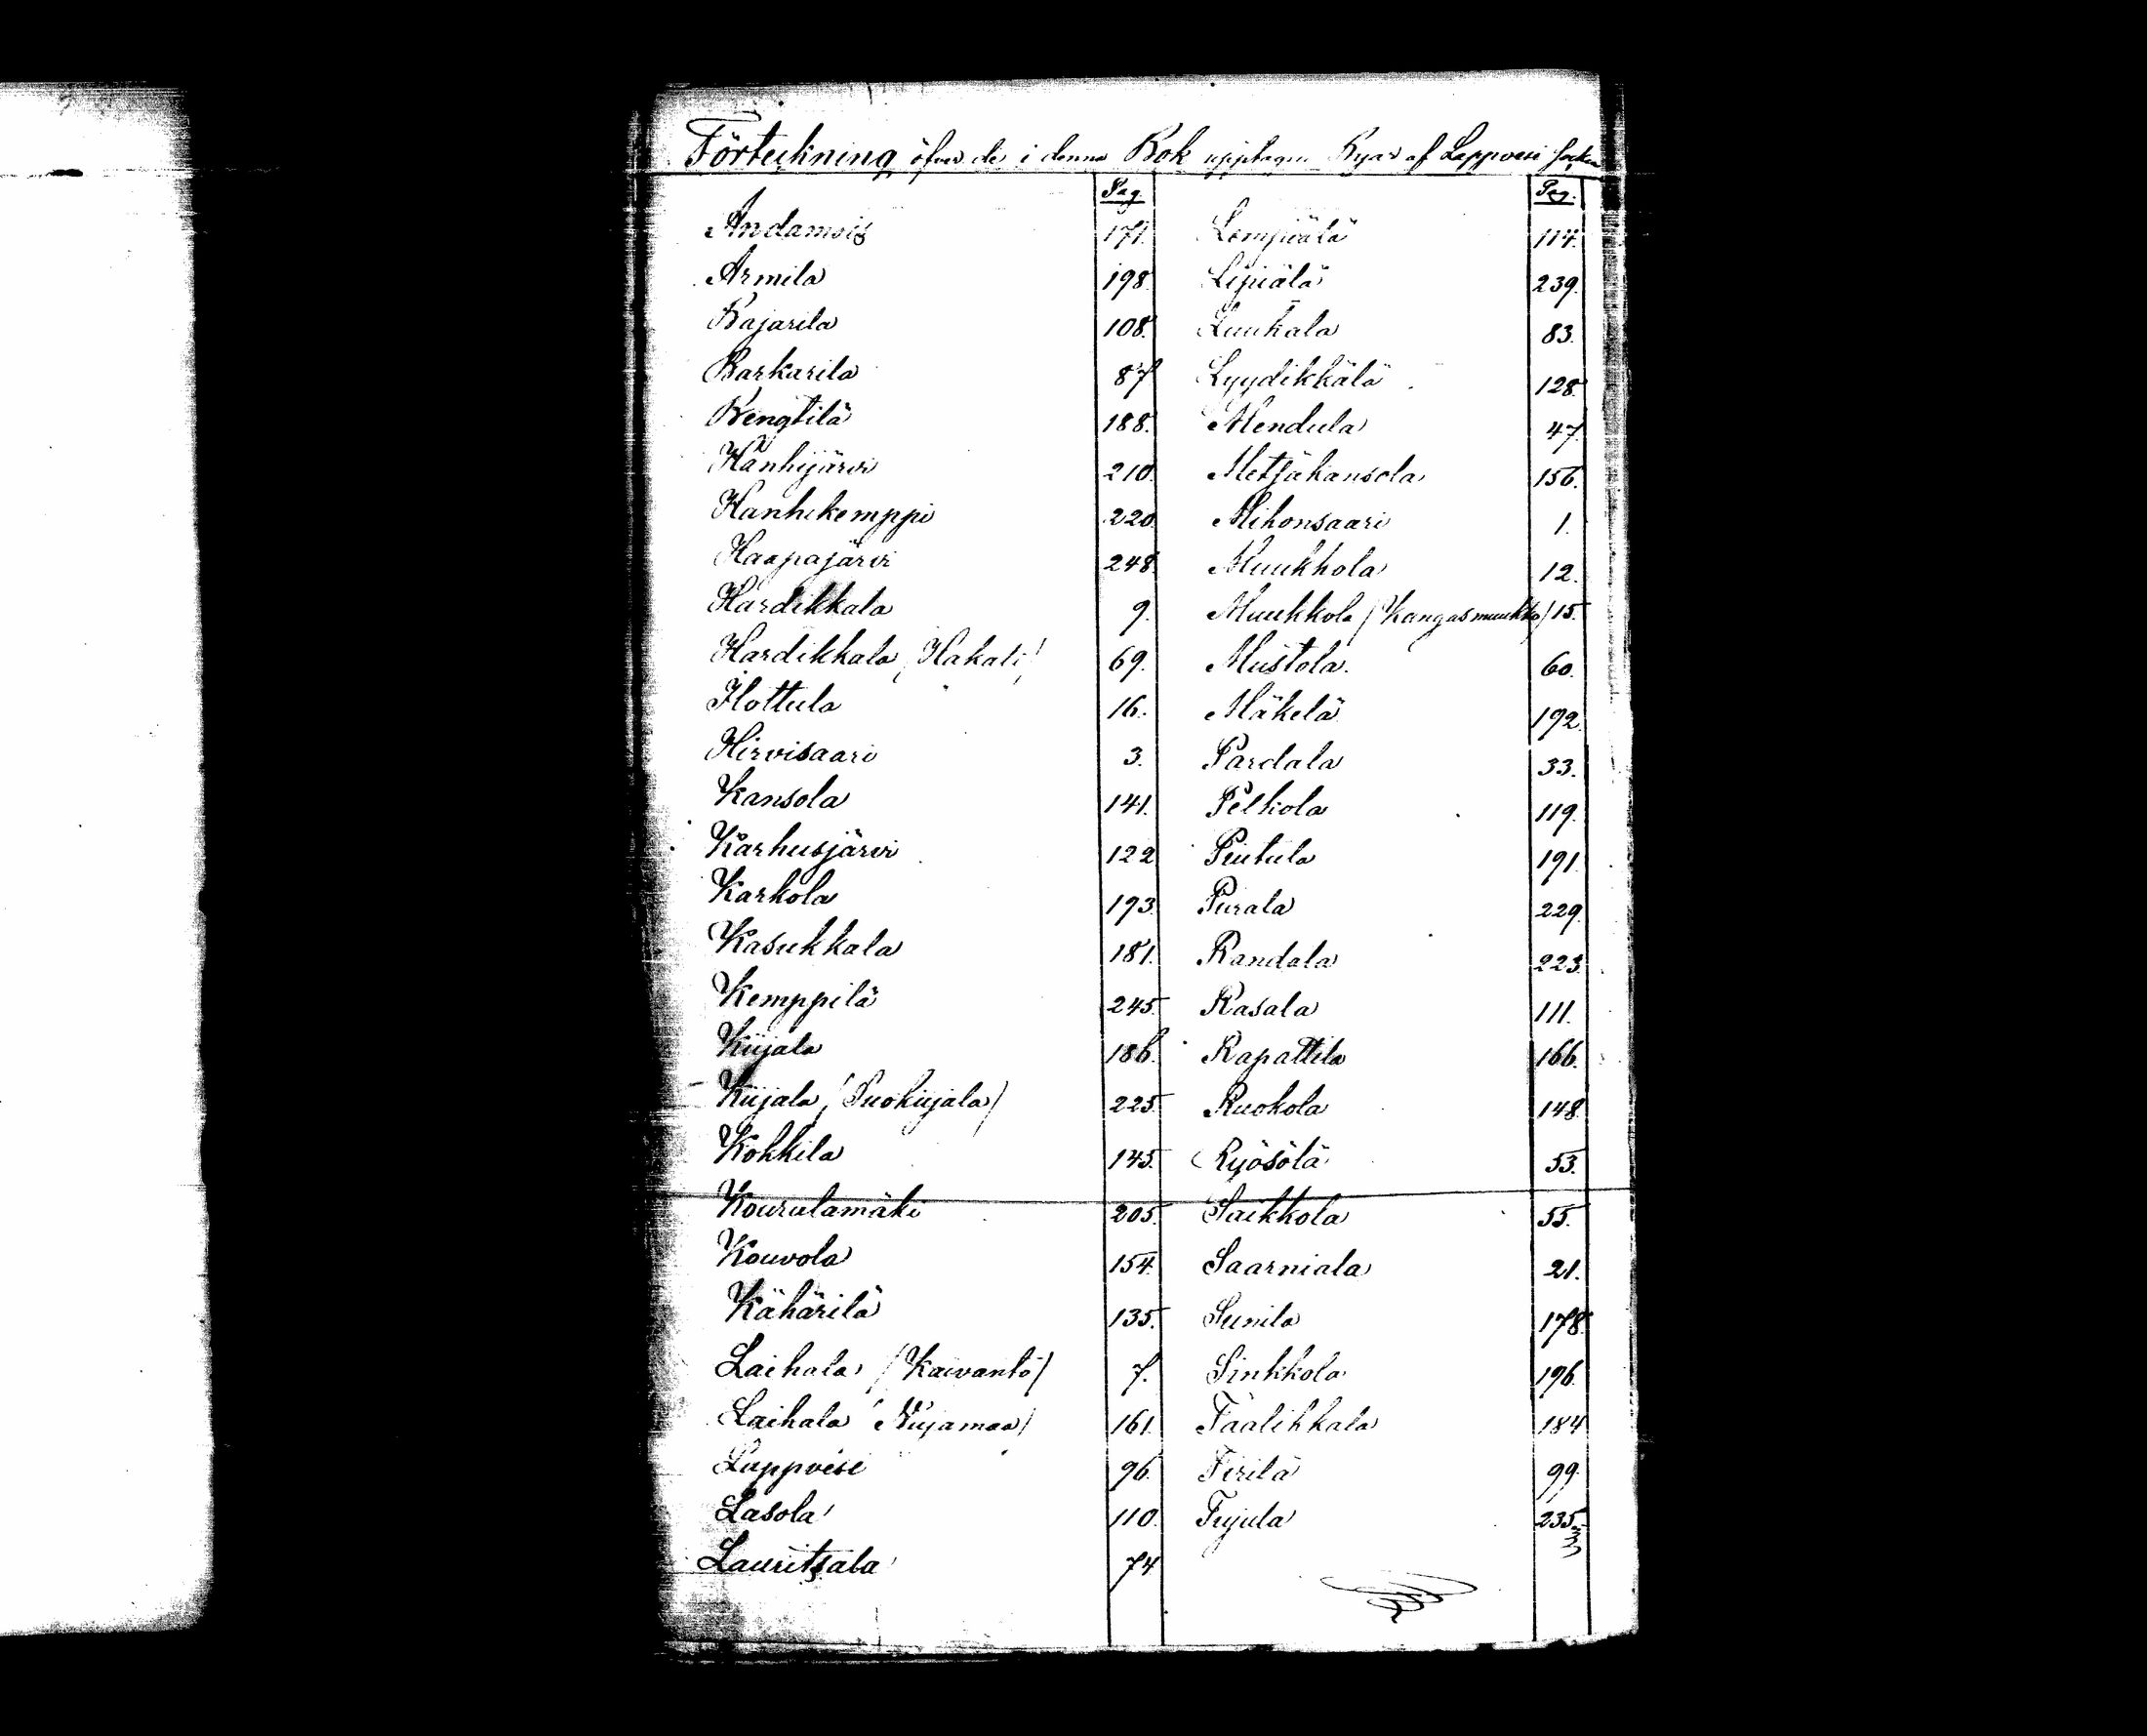 Förteckning öfver de i denna Bok upptagne Byar af Lappvesi Socken
Pag.
Andamois 171.
Armila 198.
Bajarila 108.
Barkarila 87
Bengtilä 188.
Hanhijärvi 210.
Hanhikemppi 220.
Haapajärvi 248.
Hardikkala 9.
Hardikkala /Hakali/ 69.
Hottula 16.
Hirvisaari 3.
Kansola 141.
Karhusjärvi 122
Karkola 193.
Kasukkala 181.
Kemppilä 245.
Kiijala 186.
Kiijala /Suokiijala/ 225.
Kokkila 145.
Kourulamäki 205.
Kouvola 154.
Kähärilä 135.
Laihala /Kaivanto/ 7.
Laihala /Nuijamaa/ 161.
Lappvesi 96.
Lasola 110.
Lauritsala 74
Pag.
Lempiälä 114.
Lipiälä 239.
Luukala 83.
Lyydikkälä 128.
Mendula 47.
Metsäkansola 156.
Mihonsaari 1.
Muukhola 12.
Muukkola /Kangasmuukko/ 15.
Mustola. 60.
Mäkelä 192.
Pardala 33.
Pelkola 119.
Piutula 191.
Purala 229.
Randala 223.
Rasala 111.
Rapattila 166.
Ruokola 148.
Ryösölä 53.
Saikkola 55.
Saarniala 21.
Sunila 178.
Sinkkola 196.
Taalikkala 184
Tirilä 99.
Tujula 235.